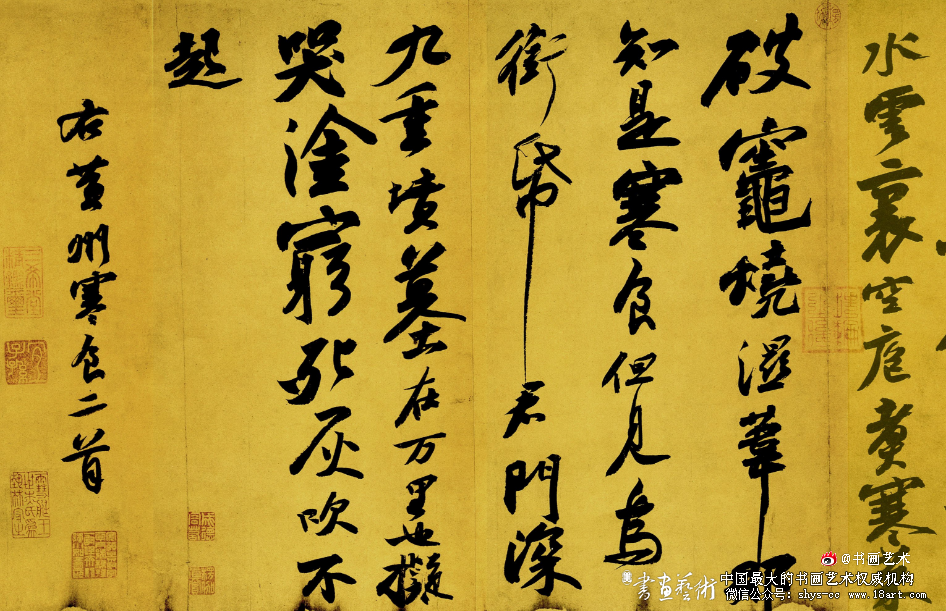 水雲裏空庖煑寒
破竈燒濕葦
知是寒食但見烏
銜帋君門深
九重墳墓在万里也擬
哭塗窮死灰吹不
起
右黄州寒食二首
@书画艺术
書画藝術
中国最大的书画艺术权威机构
微信公众号: shys-cc www.18art.com